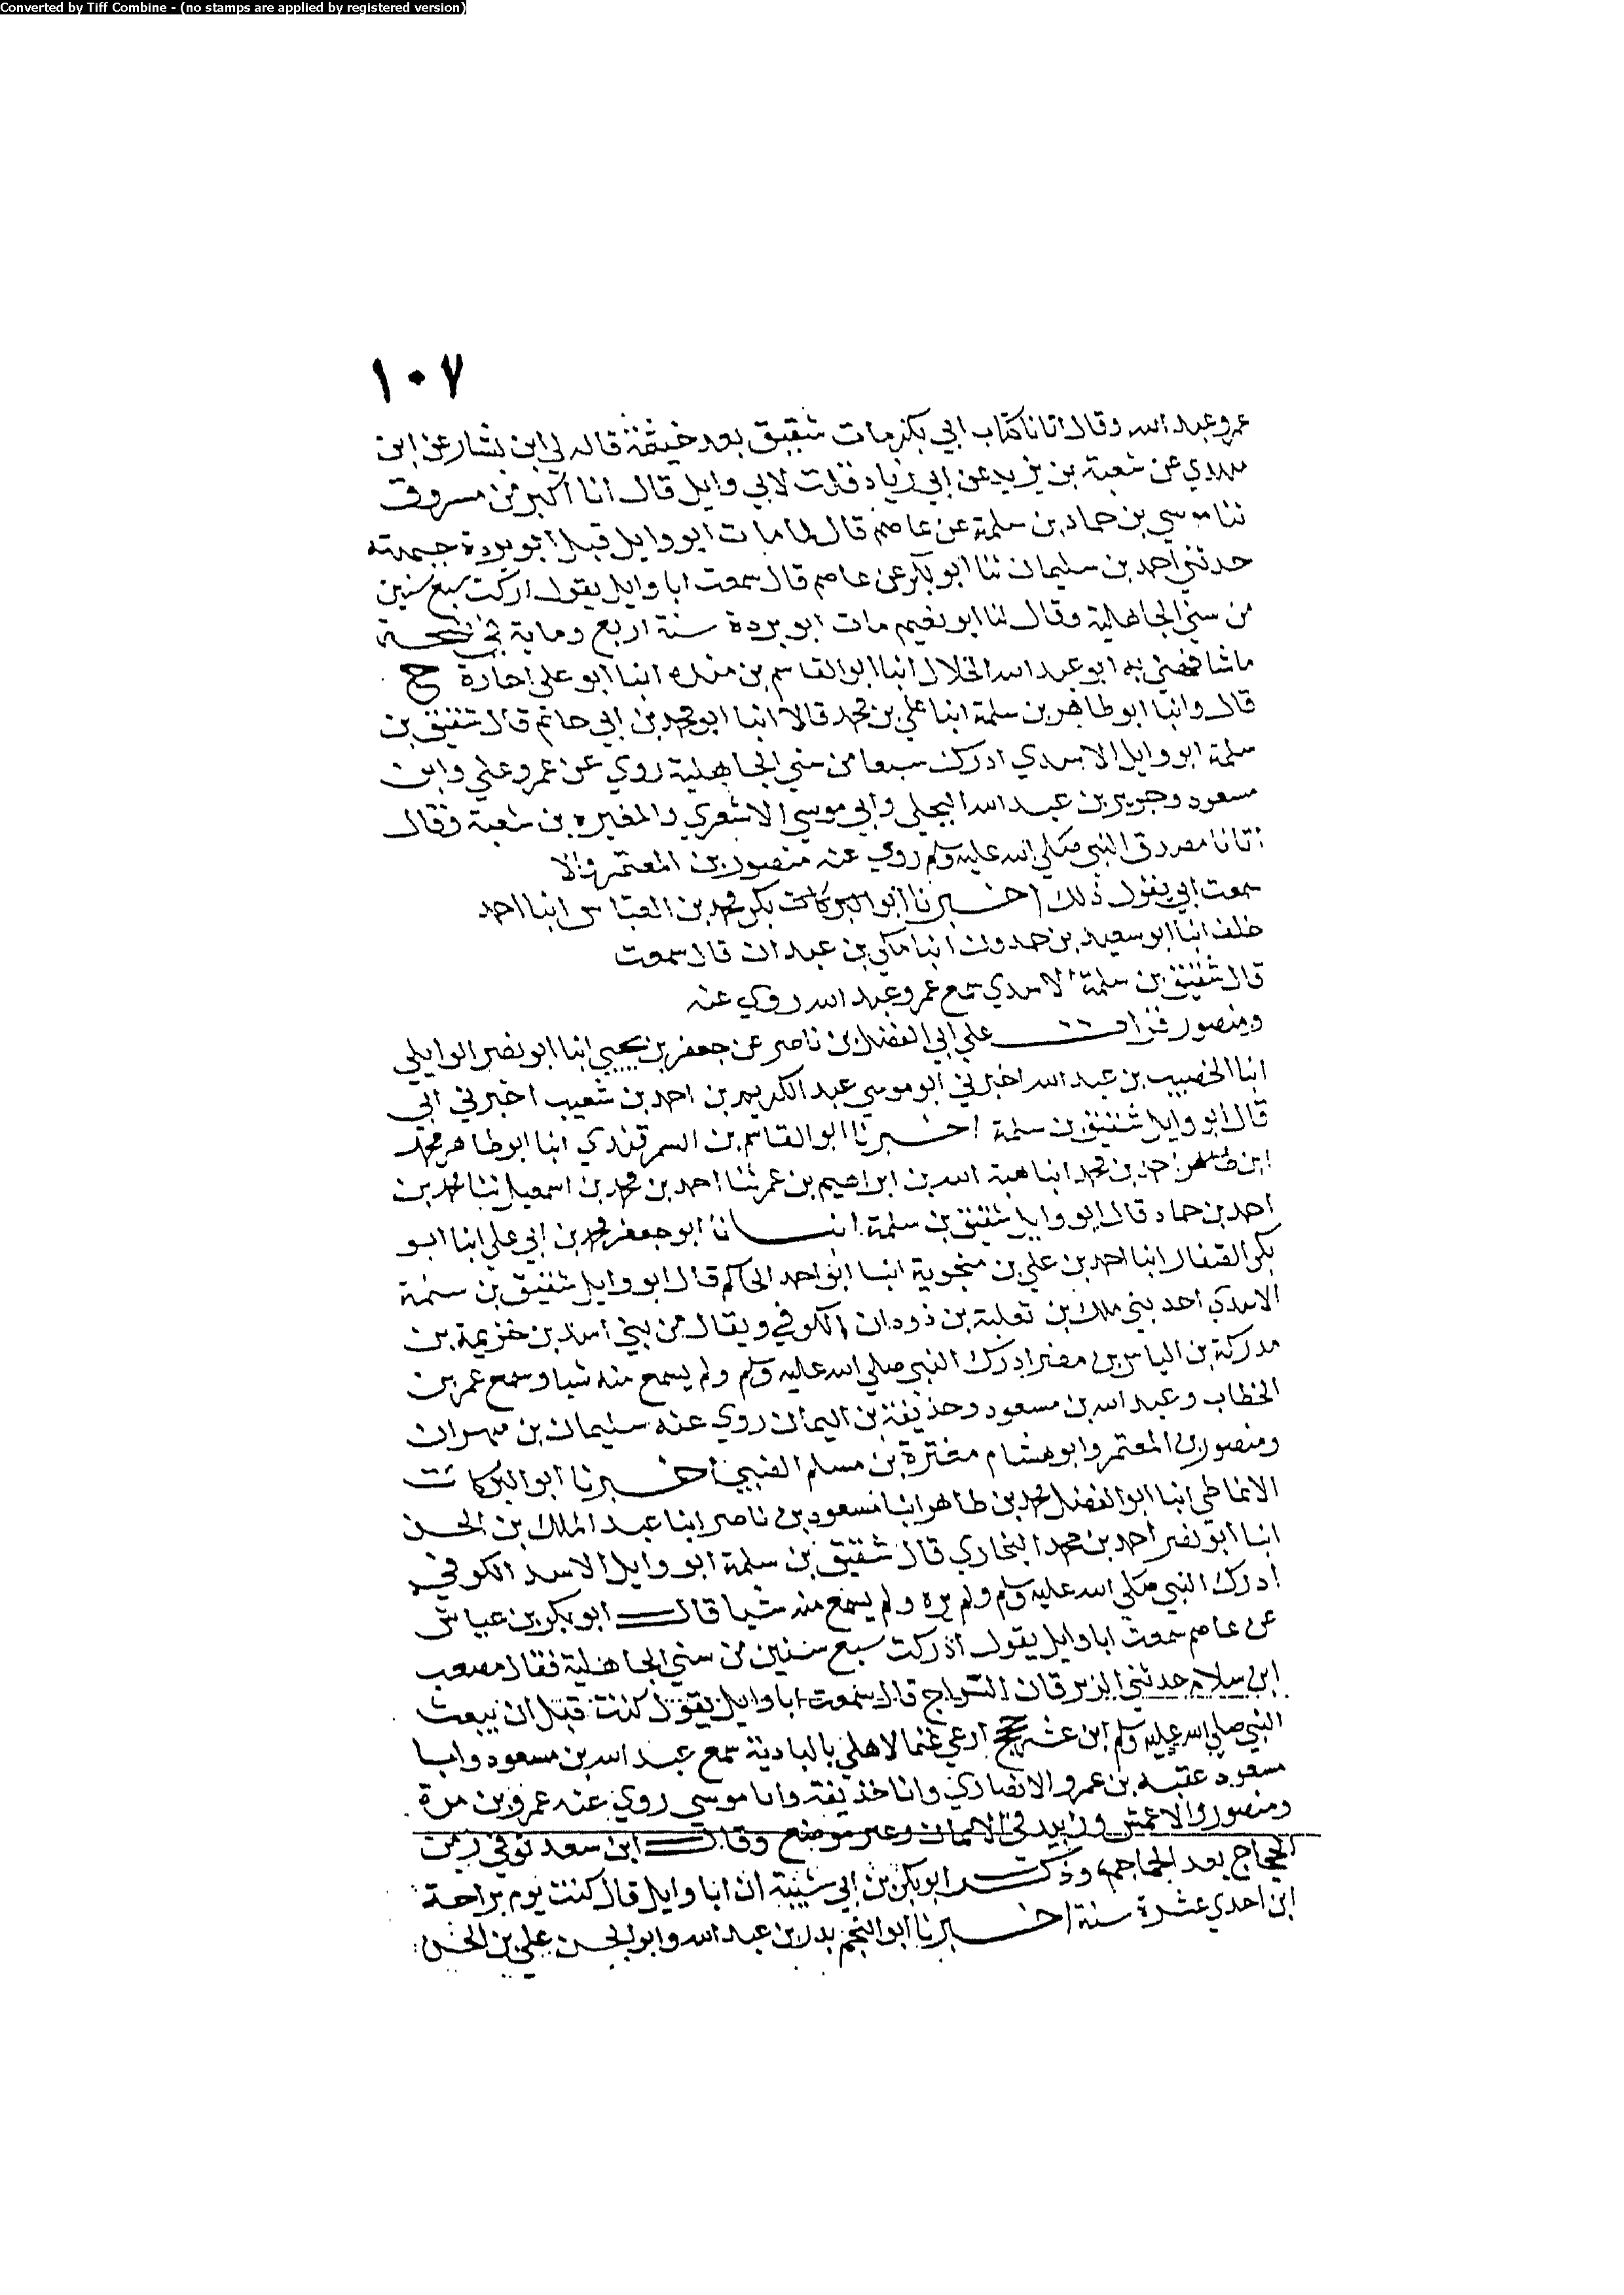 Converted by Tiff Combine - (no stamps are applied by registered version)
١٠٧
عمر وعبد الله وقال اتانا كتاب ابي بكر مات شقيق بعد خيثمة قاله لي ابن بشار عن ابن
مهدي عن شعبة بن يزيد عن ابي زياد قلت لابي وايل قال انا اكبر من مسروق
ثنا موسي بن حماد بن سلمة عن عاصم قال لما مات ابو وايل قبل ابو بردة جبهته
حدثني احمد بن سليمان ثنا ابو بكر عن عاصم قال سمعت ابا وايل يقول ادركت سبع سنين
من سني الجاهلية وقال لنا ابو نعيم مات ابو بردة سنة اربع وماية في
ما شافهني به ابو عبد الله الخلال انبا ابو القاسم بن منده انبا ابو علي اجازة ح
قال وانبا ابو طاهر بن سلمة انبا علي بن محمد قالا انبا ابو محمد بن ابي حاتم قال شقيق بن
سلمة ابو وايل الاسدي ادرك سبعا من سني الجاهلية روي عن عمر وعلي وابن
مسعود وجرير بن عبد الله البجلي وابي موسي الاشعري والمغيره بن شعبة وقال
اتانا مصدق النبي صلي الله عليه وسلم روي عنه منصور بن المعتمر والا
سمعت ابي يقول ذلك اخبرنا ابو البركات بكر محمد بن العباس انبا احمد
خلف انبا ابو سعيد بن حمدون انبا مكي بن عبدان قال سمعت
قال شقيق بن سلمة الاسدي سمع عمر وعبد الله روي عنه
ومنصور قرات علي ابي الفضل بن ناصر عن جعفر بن يحيي انبا ابو نصر الوايلي
انبا الخصيب بن عبد الله اخبرني ابو موسي عبد الكريم بن احمد بن شعيب اخبرني ابي
قال ابو وايل شقيق بن سلمة اخبرنا ابو القاسم بن السمرقندي انبا ابو طاهر محمد
ابن احمد بن محمد انبا هبة الله بن ابراهيم بن عمر ثنا احمد بن محمد بن اسمعيل ثنا محمد بن
احمد بن حماد قال ابو وايل شقيق بن سلمة انبانا ابو جعفر محمد بن ابي علي انبا ابو
بكر الصفار انبا احمد بن علي بن منجوية انبا ابو احمد الحاكم قال ابو وايل شقيق بن سلمة
الاسدي احد بني ملك بن ثعلبة بن دودان الكوفي ويقال من بني اسد بن خزيمة بن
مدركة بن الياس بن مضر ادرك النبي صلي الله عليه وسلم ولم يسمع منه شيا وسمع عمر بن
الخطاب وعبد الله بن مسعود وحذيفة بن اليمان روي عنه سليمان بن مهران
ومنصور بن المعتمر وابو هشام مغيرة بن مسلم الضبي اخبرنا ابو البركات
الانماطي انبا ابو الفضل محمد بن طاهر انبا مسعود بن ناصر انبا عبد الملك بن الحسن
انبا ابو نصر احمد بن محمد البخاري قال شقيق بن سلمة ابو وايل الاسد الكوفي
ادرك النبي صلي الله عليه وسلم ولم يره ولم يسمع منه شيا قال ابو بكر بن عياش
عن عاصم سمعت ابا وايل يقول ادركت سبع سنين من سني الجاهلية فقال مصعب
ابن سلام حدثني الزبرقان السراج قال سمعت ابا وايل يقول كنت قبل ان يبعث
النبي صلي الله عليه وسلم ابن عشر حجج ارعي غنما لاهلي بالبادية سمع عبد الله بن مسعود وابا
مسعود عقبه بن عمرو الانصاري وابا حذيفة وابا موسي روي عنه عمرو بن مرة
ومنصور والاعمش وزبيد في الايمان وغير موضع وقال ابن سعد توفي زمن
الحجاج بعد الجماجم وذكر ابو بكر بن ابي شيبة ان ابا وايل قال كنت يوم بزاخة
ابن احدي عشرة سنة اخبرنا ابو النجم بدر بن عبد الله وابو الحسن علي بن الحسن